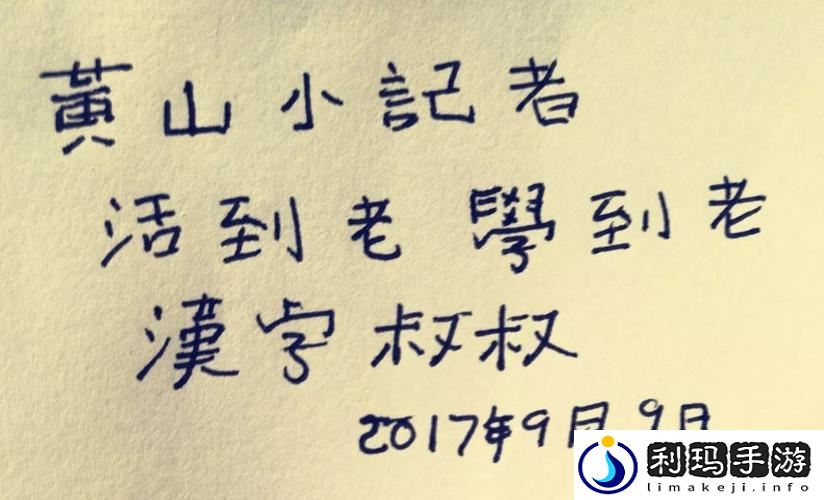 黃山小記者
活到老 學到老
漢字叔叔
2017年9月9日
利玛手游
limakeji.info